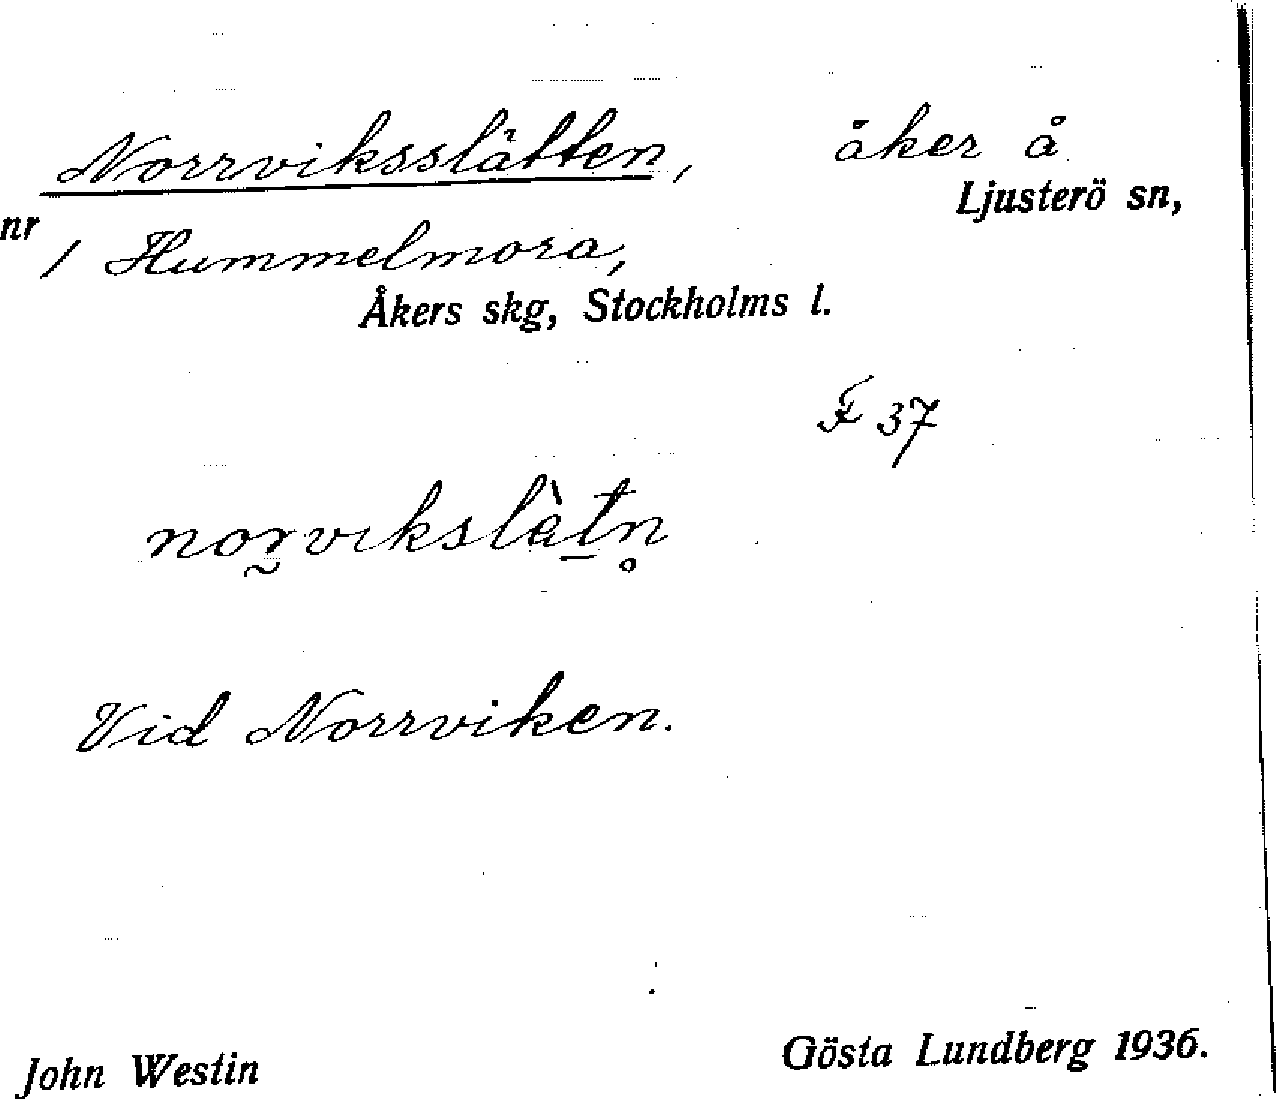 Norrviksslätten, åker å
Ljusterö sn,
nr 1 Hummelmora,
Åkers skg, Stockholms l.
F 37
Vid Norrviken.
John Westin Gösta Lundberg 1936.